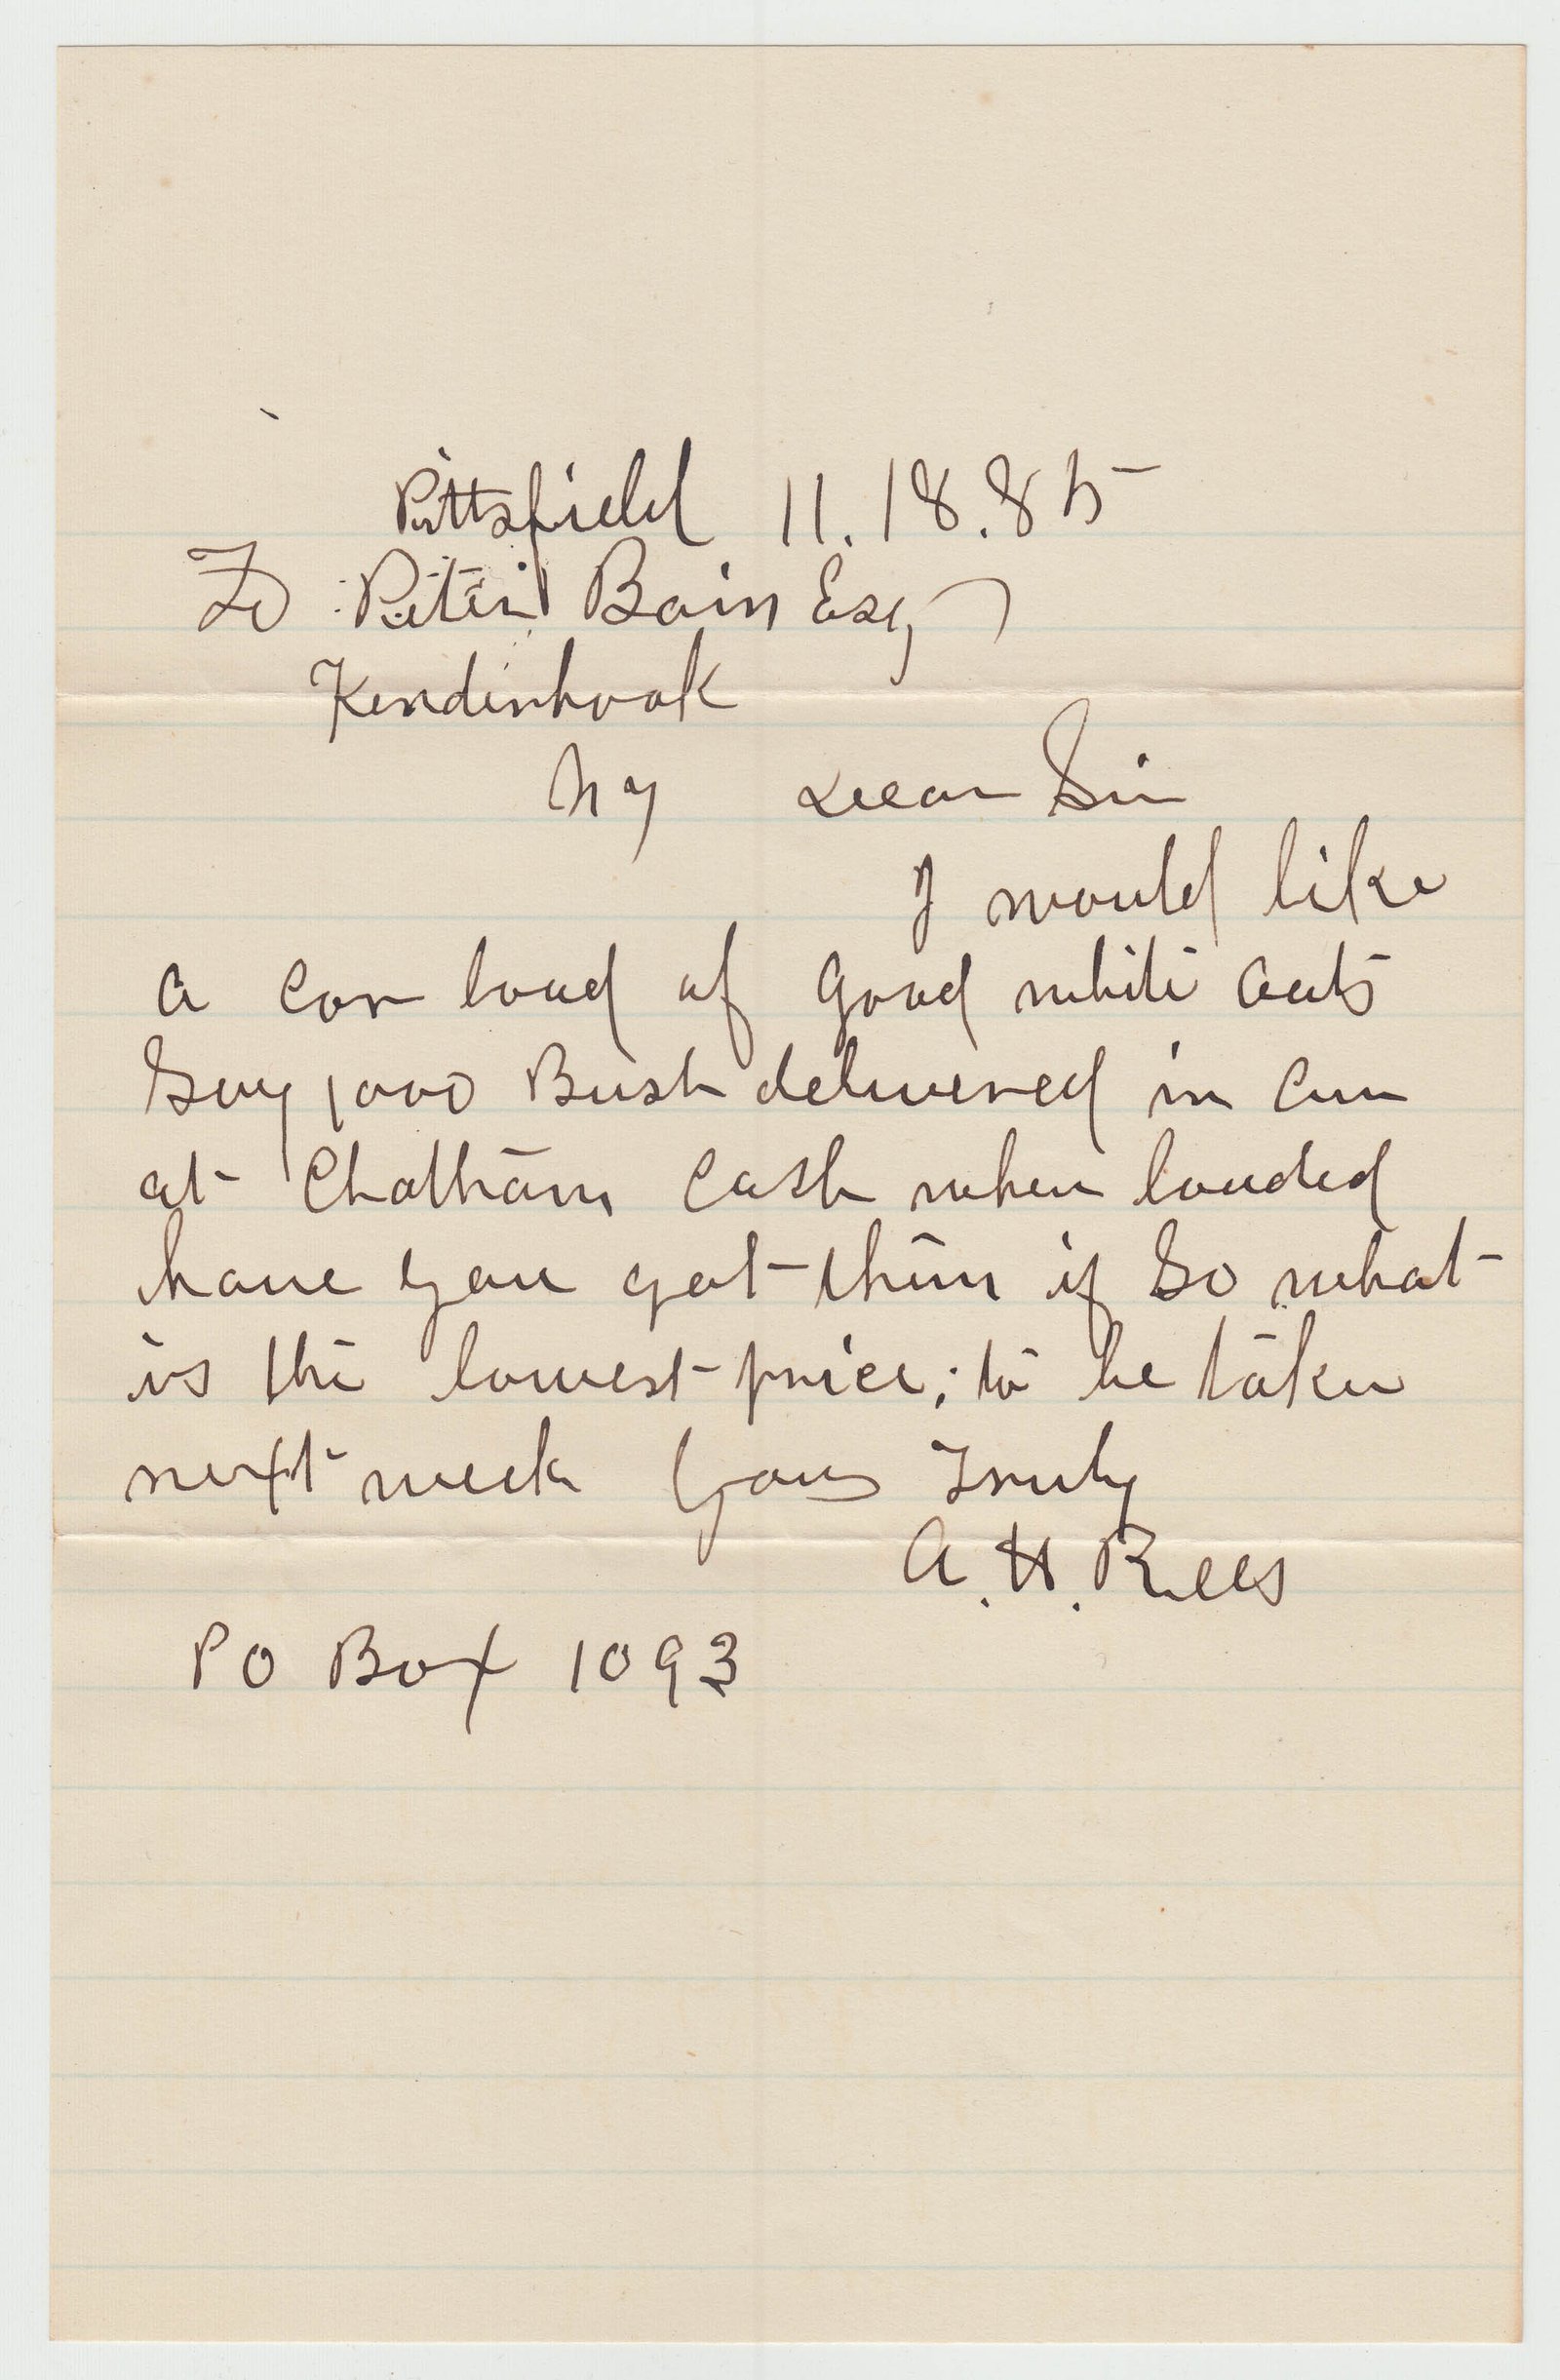 Pittsfield 11.18.85
To Peter Bain Esq
Kenderhook
NY Dear Sir
I would like
a car load of good white oats
Say 1000 Bush delivered in car
at Chatham Cash when loaded
have you got them if So what
is the lowest price; to be taken
next week Yours Truly
A. H. Rees
PO Box 1093